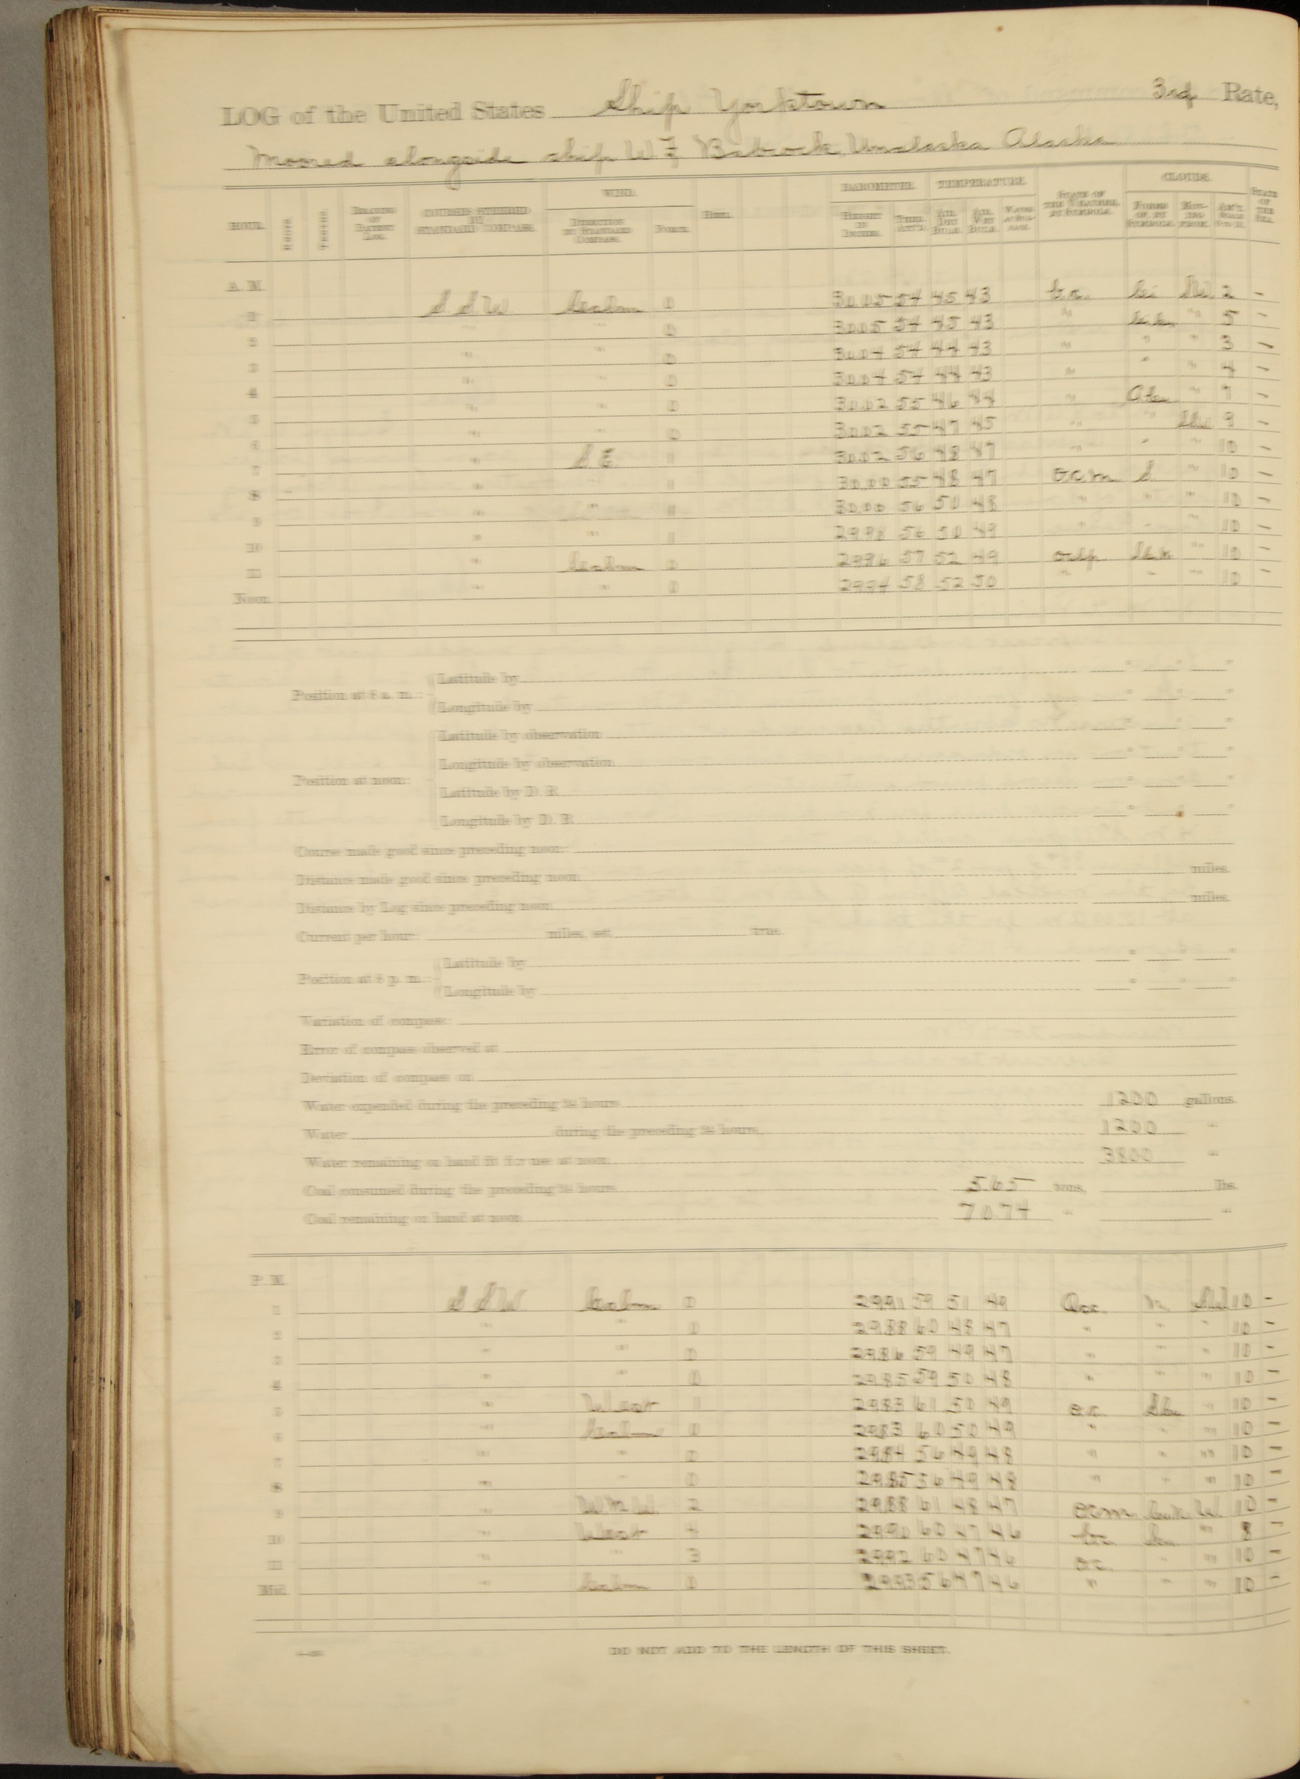 LOG of the United States Ship Yorktown 3rd Rate,
Moored alongside ship W F Babcock, Unalaska Alaska
HOUR. KNOTS. TENTHS. COURSES STEERED BY STANDARD COMPASS. WIND. DIRECTION BY STANDARD COMPASS. FORCE. BAROMETER. HEIGHT IN INCHES. THER. ATT'D. TEMPERATURE. AIR, DRY BULB. AIR, WET BULB. STATE OF THE WEATHER, BY SYMBOLS. CLOUDS. FORMS OF, BY SYMBOLS. STATE OF THE SEA.
A. M.
1 S S W Calm 0 30.05 54 45 43 2 -
2 " " 0 30.05 54 45 43 " " 5 -
3 " " 0 30.04 54 44 43 " " " 3 -
4 " " 0 30.04 54 44 43 " " " 4 -
5 " " 0 30.02 55 46 44 " " 7 -
6 " " 0 30.02 55 47 45 " " 9 -
7 " S E 1 30.02 56 48 47 " " " 10 -
8 " " 1 30.00 55 48 47 o.c.m S " 10 -
9 " " 1 30.00 56 50 48 " " " 10 -
10 " " 1 29.98 56 50 49 " " " 10 -
11 " Calm 0 29.96 57 52 49 " 10 -
Noon " " 0 29.94 58 52 50 " " " 10 -
Position at 8 a. m.:
Latitude by
Longitude by
Position at noon:
Latitude by observation
Longitude by observation
Latitude by D. R.
Longitude by D. R.
Course made good since preceding noon:
Distance made good since preceding noon miles.
Distance by Log since preceding noon miles.
Current per hour: miles, set true.
Position at 8 p. m.:
Latitude by
Longitude by
Variation of compass:
Error of compass observed at
Deviation of compass on
Water expended during the preceding 24 hours 1200 gallons.
Water during the preceding 24 hours, 1200 "
Water remaining on hand fit for use at noon 3800 "
Coal consumed during the preceding 24 hours 5.65 tons, lbs.
Coal remaining on hand at noon 70.74 " "
P. M.
1 S S W Calm 0 29.91 59 51 49 Occ. 10 -
2 " " 0 29.88 60 48 47 " " " 10 -
3 " " 0 29.86 59 49 47 " " " 10 -
4 " " 0 29.85 59 50 48 " " " 10 -
5 " West 1 29.83 61 50 49 o.c. " 10 -
6 " Calm 0 29.83 60 50 49 " " " 10 -
7 " " 0 29.84 56 49 48 " " " 10 -
8 " " 0 29.85 56 49 48 " " " 10 -
9 " W N W 2 29.88 61 48 47 o.c.m. 10 -
10 " West 4 29.90 60 47 46 b.c. " 8 -
11 " " 3 29.92 60 47 46 o.c. " " 10 -
Mid. " Calm 0 29.93 56 47 46 " " " 10 -
DO NOT ADD TO THE LENGTH OF THIS SHEET.